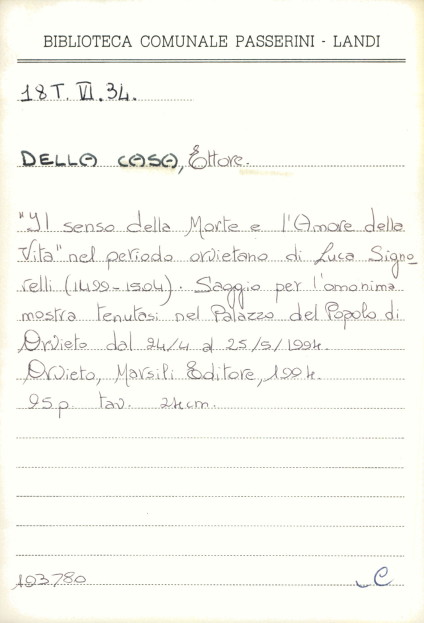 BIBLIOTECA COMUNALE PASSERINI - LANDI
18T. VI. 34.
DELLA CASA, Ettore.
"Il senso della Morte e l'Amore della
Vita" nel periodo orvietano di Luca Signo_
relli (1499-1504). Saggio per l'omonima
mostra tenutasi nel Palazzo del Popolo di
Orvieto dal 24/4 al 25/5/1994.
Orvieto, Marsili Editore, 1994.
95p. tav. 24cm.
193780
C